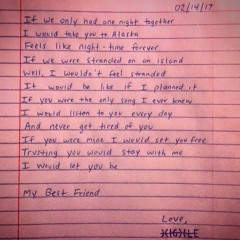 02/14/17
If we only had one night together
I would take you to Alaska
Feels like night-time forever
If we were stranded on an island
Well, I wouldn't feel stranded
It would be like if I planned it
If you were the only song I ever knew
I would listen to you every day
And never get tired of you
If you were mine I would set you free
Trusting you would stay with me
I would let you be
My Best Friend
Love,